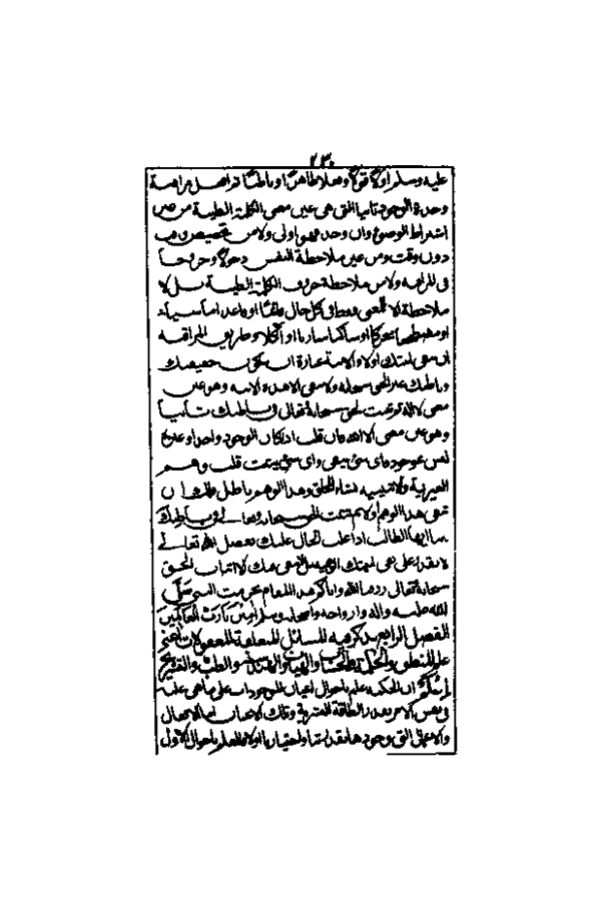 ٢٣٠
عليه وسلم اولا قولا وفعلا ظاهرا او باطنا ثم اشتغل بمراقبة
وحدة الوجود ثانيا التي هي عين معنى الكلمة الطيبة من غير
اشتراط الوضوء وان وجد فهو اولى ولا من تخصيص وقت
دون وقت ومن غير ملاحظة النفس دخولا وخروجا
في المراقبة ولا من ملاحظة حروف الكلمة الطيبة بل لا
ملاحظة الا المعنى فقط في كل حال قائما او قاعدا ماشيا
او مضطجعا متحركا او ساكنا شاربا او آكلا وطريق المراقبة
ان تنفي انيتك اولا والانية عبارة ان يكون حقيقتك
وباطنك غير الحق سبحانه ولا تنفي الا هذه الانية وهو عين
معنى لا اله ثم تثبت الحق سبحانه وتعالى في باطنك ثانيا
وهو عين معنى الا الله فان قلت اذا كان الوجود واحدا وغيره
ليس بموجود فاي شيء ينفي واي شيء يثبت قلت وهم
الغيرية والاثنينية نشاء للخلق وهذا الوهم باطل فعليك ان
تنفي هذا الوهم اولا ثم تثبت الحق سبحانه وتعالى في باطنك
يا ايها الطالب اذا غلب الحال عليك بفضل الله تعالى
لا تقدر على نفي انيتك لا اثبات الحق
سبحانه وتعالى رزقنا الله واياكم هذا المقام بحرمت النبي صلى
الله عليه واله وازواجه واصحابه وسلم امين يا رب العالمين
الفصل الرابع يذكر فيه المسائل المتعلقة
علم المنطق والحكمة والهيئات والهندسة والطب
ان الحكمة علم باحوال اعيان الموجودات على ما هي عليه
في نفس الامر بقدر الطاقة البشرية وتلك الاعيان اما الافعال
والاعمال التي وجودها بقدرتنا واختيارنا اولا فالعلم باحوال الاول